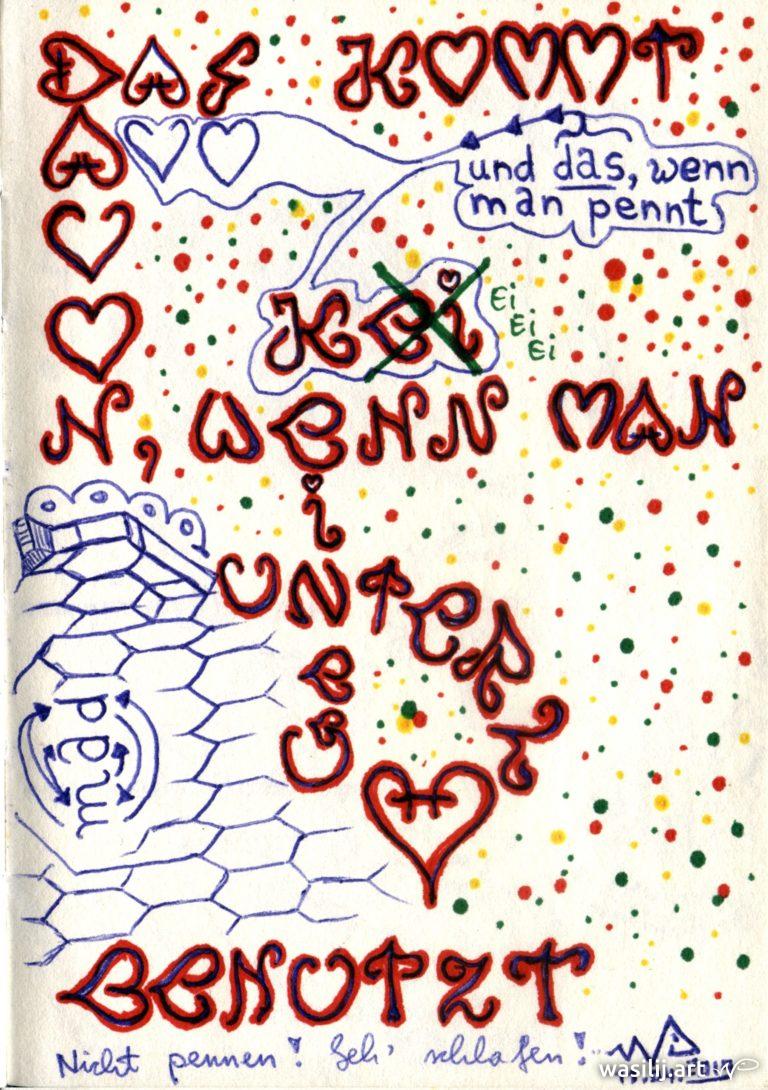 DAS KOMMT
DAVON, WENN MAN
und das, wenn
man pennt
KEi
Ei
Ei
Ei
EiNE
UNTERLAGE
mad
BENUTZT
Nicht pennen! Geh' schlafen!
wasilij.art